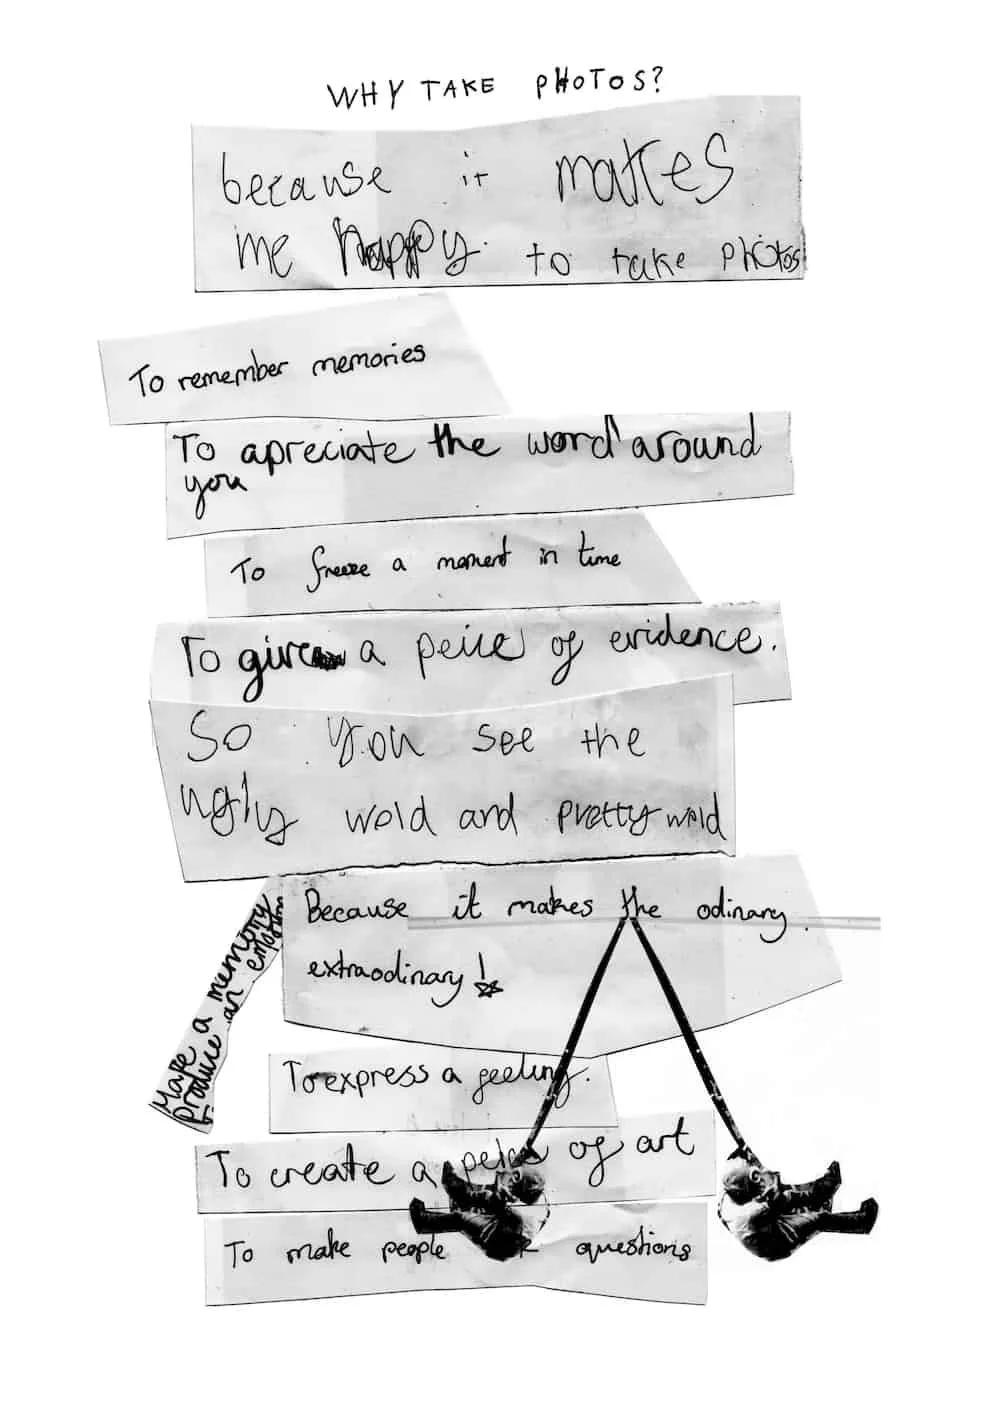 WHY TAKE PHOTOS?
because it makes
me happy to take photos
To remember memories
To apreciate the word around
you
To freeze a moment in time
To give a peice of evidence.
So you see the
ugly wold and pretty wold
Because it makes the odinary
extraodinary!
Make a memory
produce an emotion
To express a feeling.
To create a peice of art
To make people questions